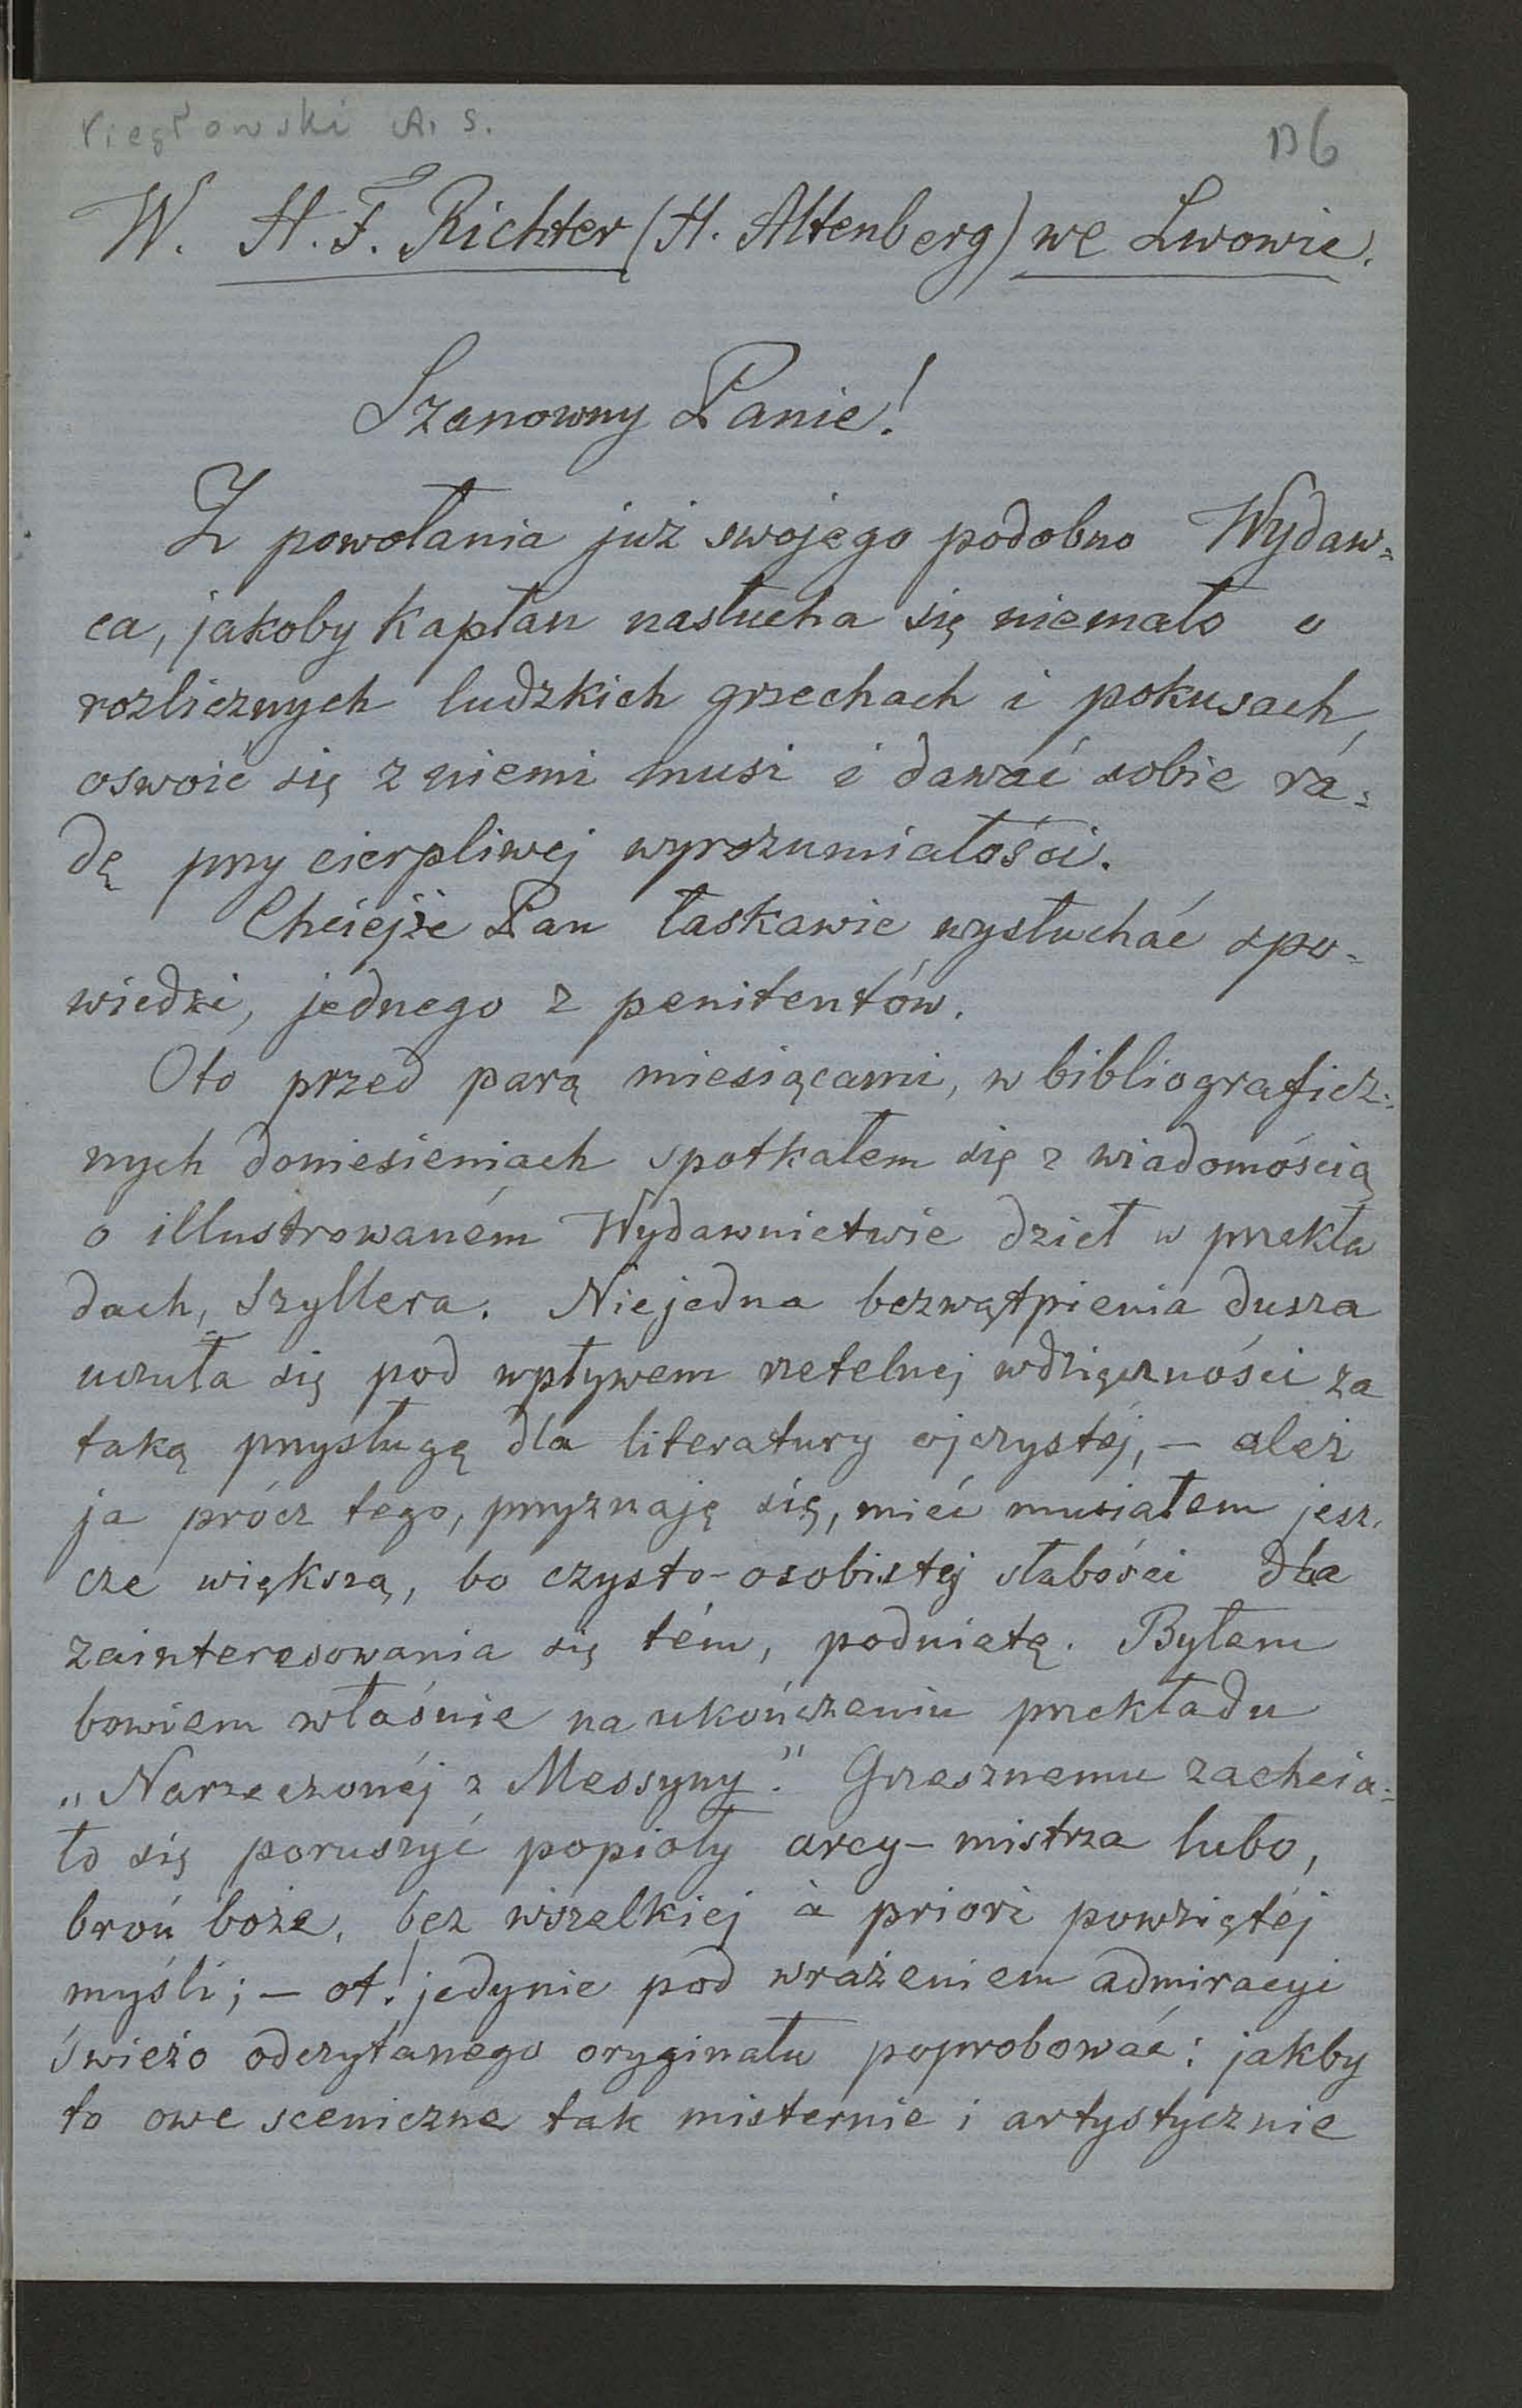 A. S.
136
W. H. F. Richter (H. Altenberg) we Lwowie.
Szanowny Panie!
Z powołania już swojego podobno Wydaw=
ca, jakoby kapłan nasłucha się niemało o
rozlicznych ludzkich grzechach i pokusach,
oswoić się z niemi musi i dawać sobie ra=
dę przy cierpliwej wyrozumiałości.
Chciejże Pan łaskawie wysłuchać spo-
wiedzi, jednego z penitentów.
Oto przed parą miesiącami, w bibliograficz=
nych doniesieniach spotkałem się z wiadomością
o illustrowaném Wydawnictwie dzieł w przekła
dach, Szyllera. Niejedna bezwątpienia dusza
uczuła się pod wpływem rzetelnej wdzięczności za
taką przysługę dla literatury ojczystéj, — ależ
ja prócz tego, przyznaję się, mieć musiałem jesz-
cze większą, bo czysto-osobistej słabości dla
zainteresowania się tém, podnietę. Byłem
bowiem właśnie na ukończeniu przekładu
„Narzeczonéj z Messyny." Grzesznemu zachcia=
ło się poruszyć popioły arcy-mistrza lubo,
broń boże, bez wszelkiej à priori powziętéj
myśli; — ot! jedynie pod wrażeniem admiracyi
świeżo odczytanego oryginału poprobować: jakby
to owe sceniczne tak misternie i artystycznie